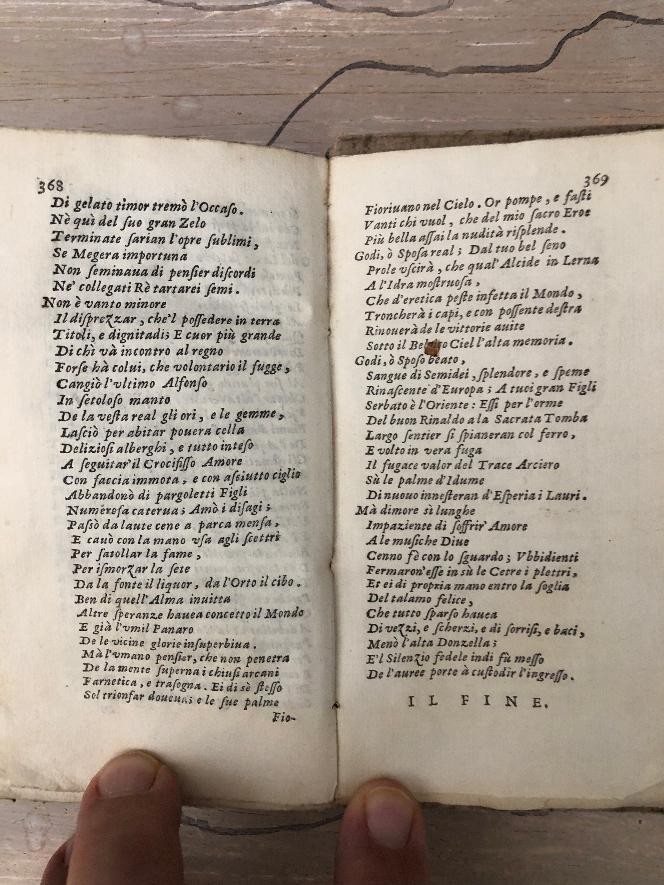 368
Di gelato timor tremò l'Occaso.
Nè quì del suo gran Zelo
Terminate sarian l'opre sublimi,
Se Megera importuna
Non seminaua di pensier discordi
Ne' collegati Rè tartarei semi.
Non è vanto minore
Il disprezzar, che'l possedere in terra
Titoli, e dignitadi; E cuor più grande
Di chi và incontro al regno
Forse hà colui, che volontario il fugge,
Cangiò l'vltimo Alfonso
In setoloso manto
De la vesta real gli ori, e le gemme,
Lasciò per abitar pouera cella
Deliziosi alberghi, e tutto inteso
A seguitar il Crocifisso Amore
Con faccia immota, e con asciutto ciglio
Abbandonò di pargoletti Figli
Numerosa caterua; Amò i disagi;
Passò da laute cene a parca mensa,
E cauò con la mano vsa agli scettri
Per satollar la fame,
Per ismorzar la sete
Da la fonte il liquor, da l'Orto il cibo.
Ben di quell'Alma inuitta
Altre speranze hauea concetto il Mondo
E già l'vmil Panaro
De le vicine glorie insuperbiua.
Mà l'vmano pensier, che non penetra
De la mente superna i chiusi arcani
Farnetica, e trasogna. Ei di sè stesso
Sol trionfar doueua; e le sue palme
Fio-
369
Fioriuano nel Cielo. Or pompe, e fasti
Vanti chi vuol, che del mio sacro Eroe
Più bella assai la nudità risplende.
Godi, ò Sposa real; Dal tuo bel seno
Prole vscirà, che qual'Alcide in Lerna
A l'Idra mostruosa,
Che d'eretica peste infetta il Mondo,
Troncherà i capi, e con possente destra
Rinouerà de le vittorie auite
Sotto il Ciel l'alta memoria.
Godi, ò Sposo beato,
Sangue di Semidei, splendore, e speme
Rinascente d'Europa; A tuoi gran Figli
Serbato è l'Oriente: Essi per l'orme
Del buon Rinaldo a la Sacrata Tomba
Largo sentier si spianeran col ferro,
E volto in vera fuga
Il fugace valor del Trace Arciero
Sù le palme d'Idume
Di nuouo innesteran d'Esperia i Lauri.
Mà dimore sì lunghe
Impaziente di soffrir' Amore
A le musiche Diue
Cenno fè con lo sguardo; Vbbidienti
Fermaron'esse in sù le Cetre i plettri,
Et ei di propria mano entro la soglia
Del talamo felice,
Che tutto sparso hauea
Di vezzi, e scherzi, e di sorrisi, e baci,
Menò l'alta Donzella;
E'l Silenzio fedele indi fù messo
De l'auree porte à custodir l'ingresso.
IL FINE.